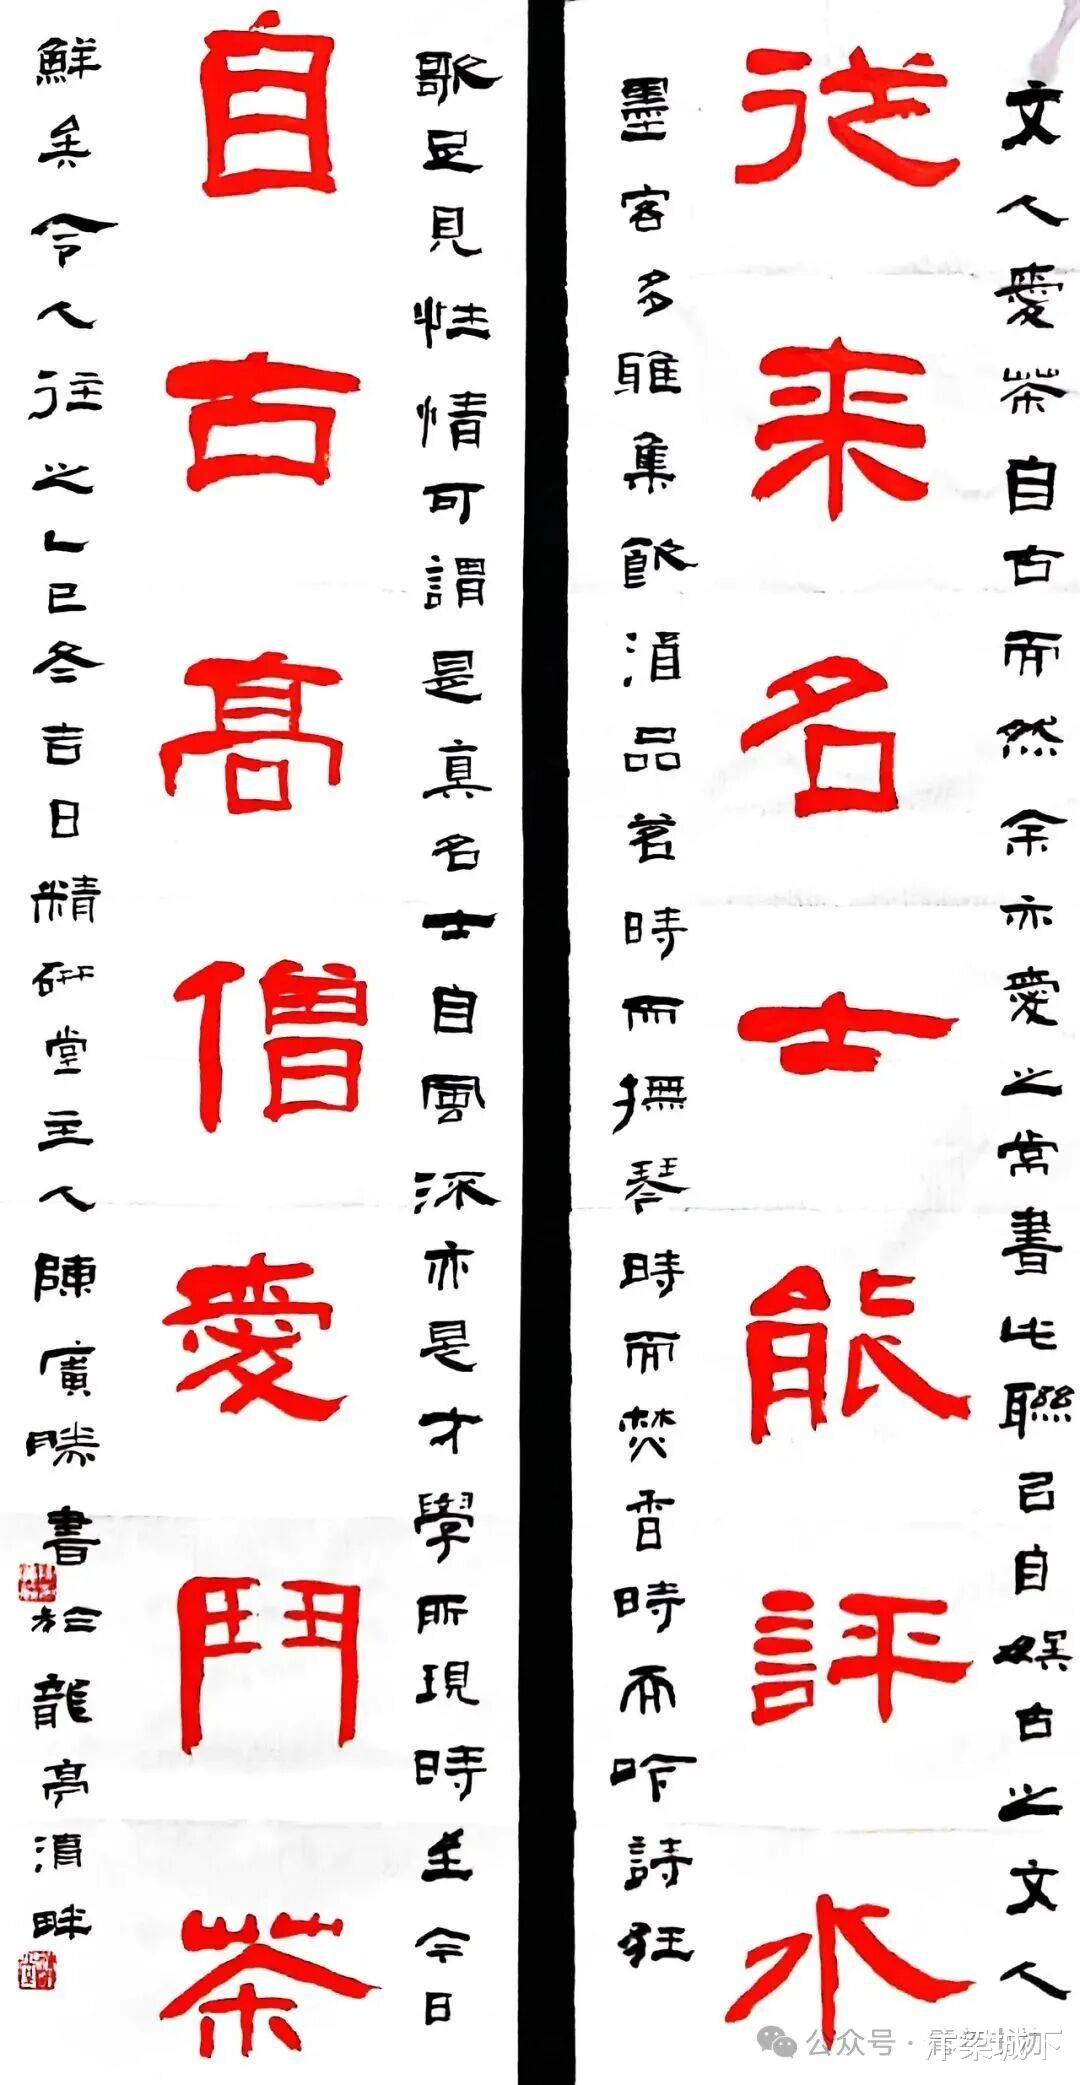 文人愛茶自古而然余亦愛之常書此聯已自娛古之文人
從来名士能評水
墨客多雅集飲酒品茗時而撫琴時而焚香時而吟詩狂
歌足見性情可謂是真名士自風流亦是才學所現時至今日
自古高僧愛鬥茶
鮮矣令人往之乙巳冬吉日精研堂主人陳廣勝書於龍亭湖畔
公众号
汴梁城下